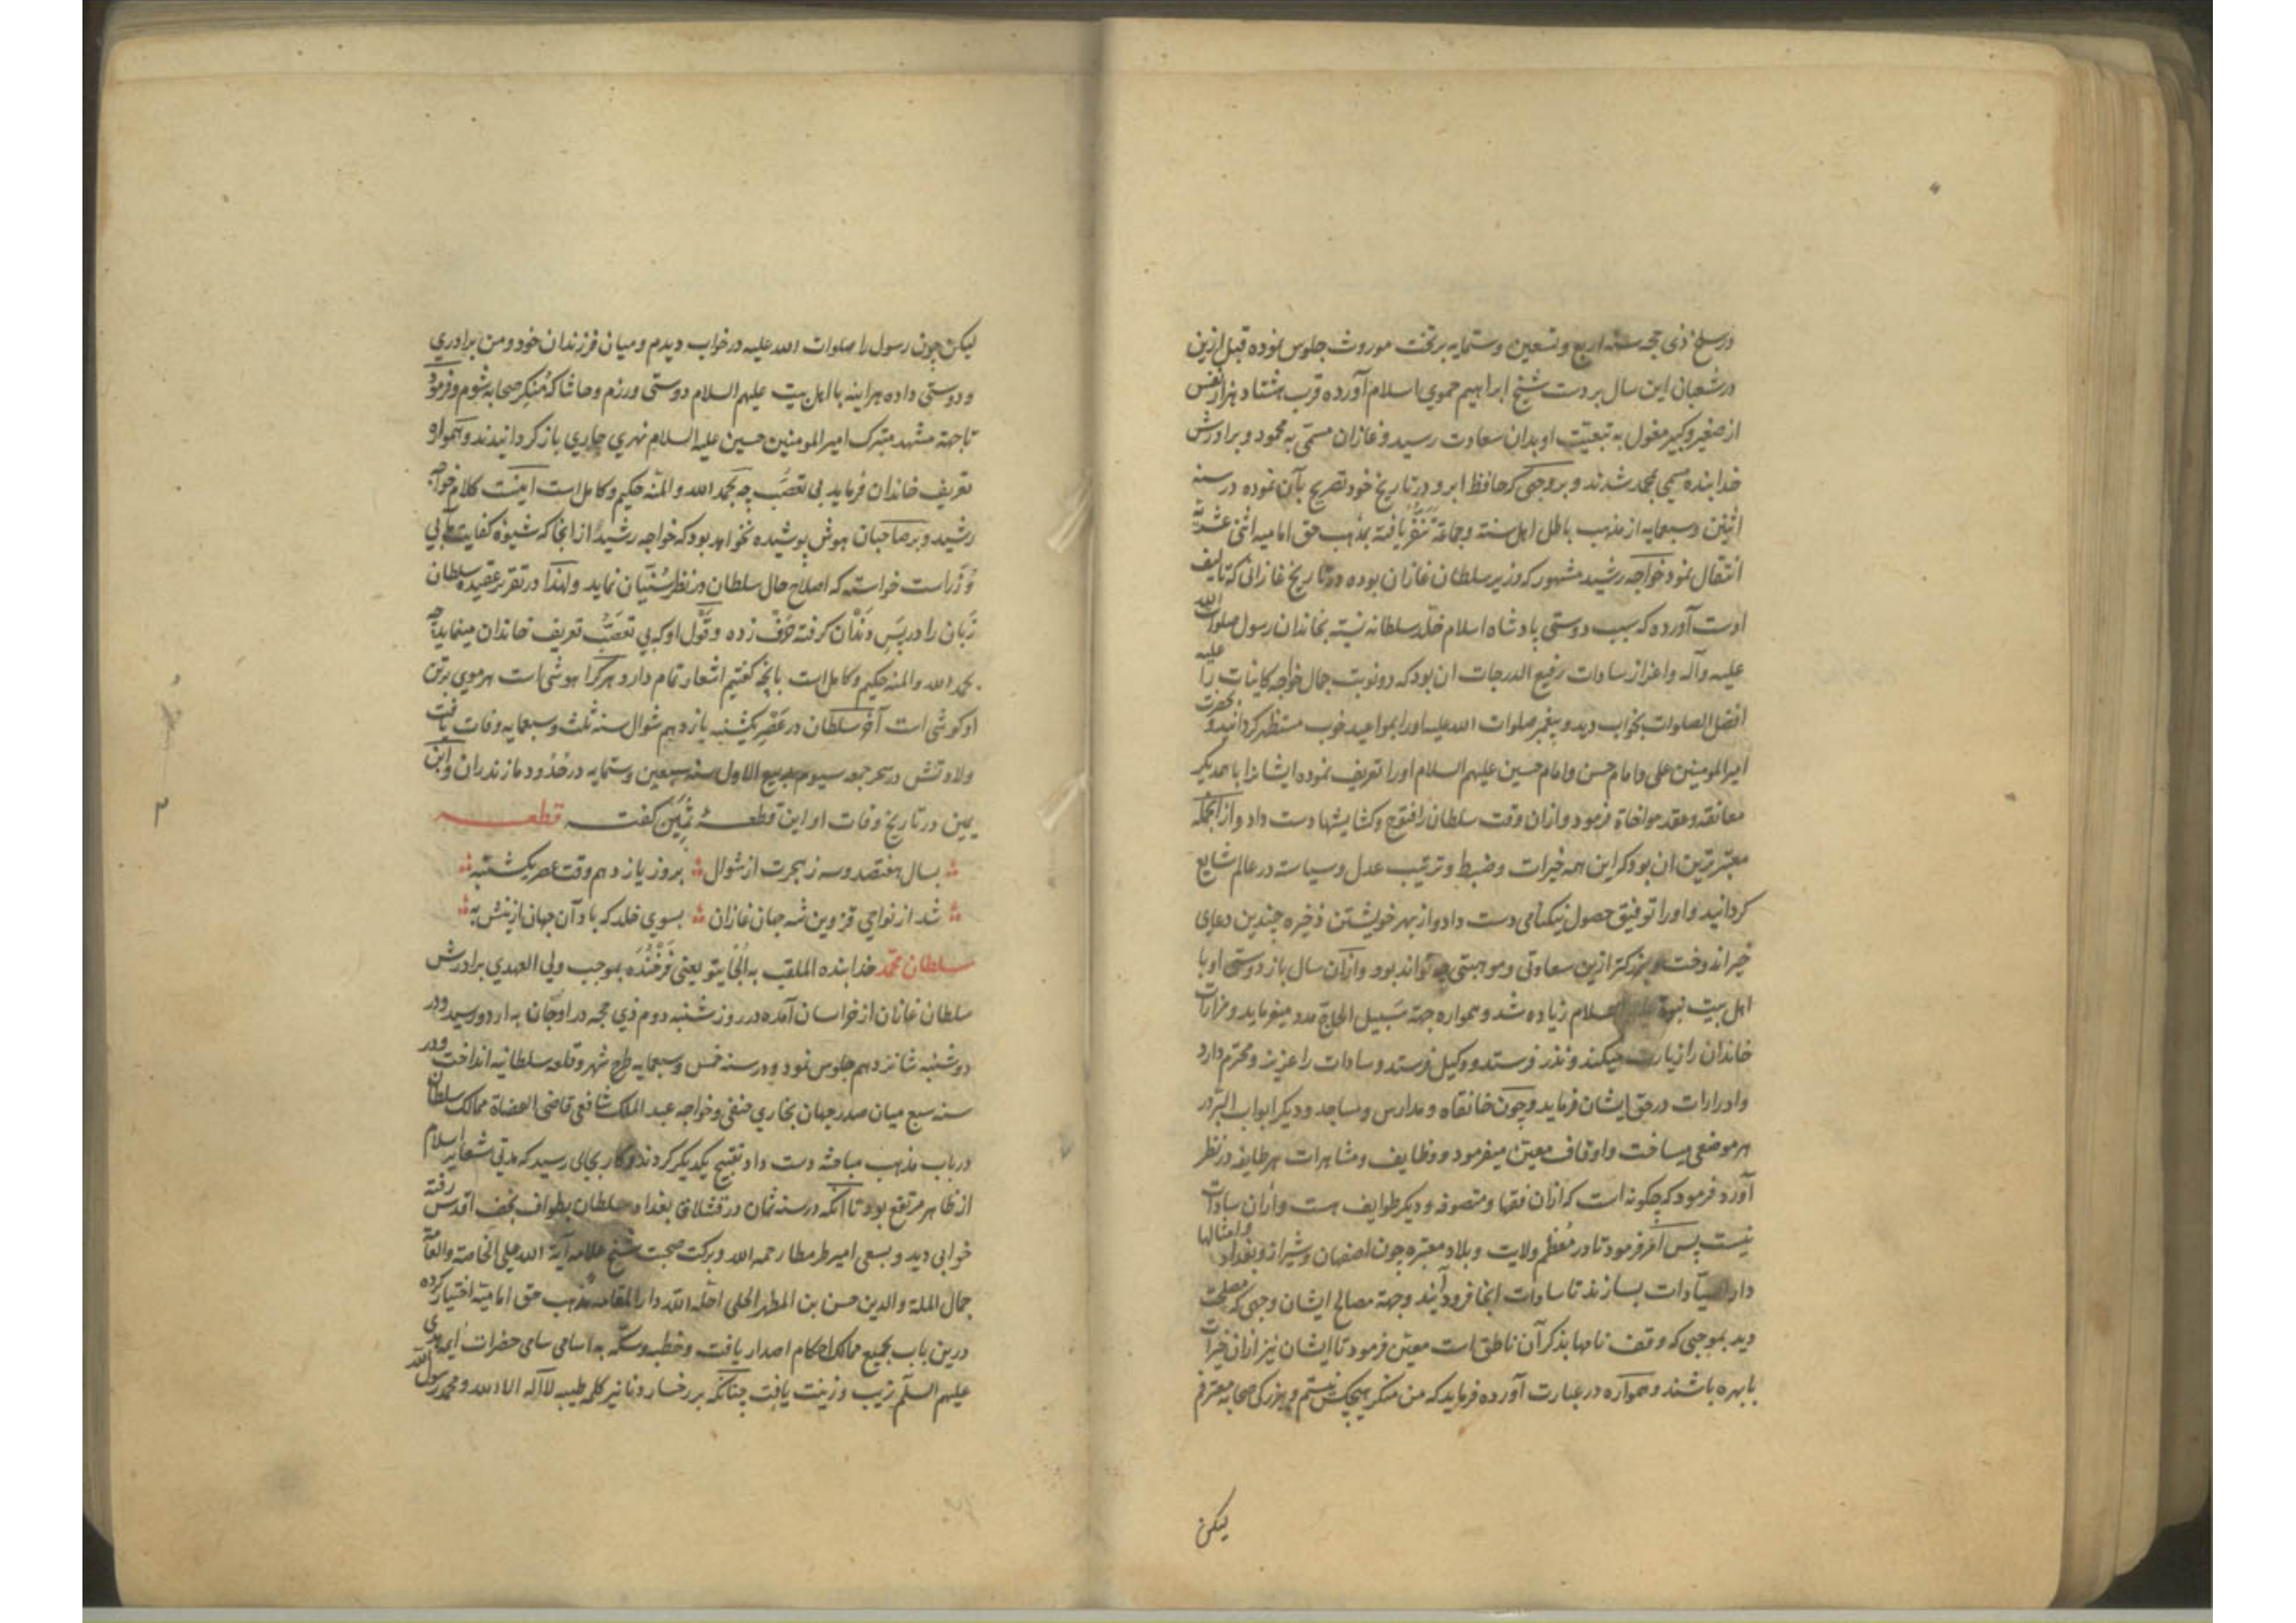 در سلخ ذی حجه سنه اربع و تسعین و ستمایه بر تخت موروث جلوس نموده قبل ازین
در شعبان این سال بر دست شیخ ابراهیم حموی اسلام آورده قرب هشتاد هزار نفس
از صغیر و کبیر مغول به تبعیّت او بدان سعادت رسید و غازان مسمّی به محمود و برادرش
خدابنده مسمی بمحمد شدند و بروجهی که حافظ ابرو در تاریخ خود تصریح بآن نموده در سنه
اثنین و سبعمایه از مذهب باطل اهل سنة و جماعة تنفّر یافته بمذهب حق امامیه اثنی عشریّه
انتقال نمود خواجه رشید مشهور که وزیر سلطان غازان بوده در تاریخ غازانی که تالیف
اوست آورده که سبب دوستی پادشاه اسلام خلّد سلطانه نسبة بخاندان رسول صلوات الله
علیه وآله و اعزاز سادات رفیع الدرجات ان بود که دو نوبت جمال خواجه کاینات را علیه
افضل الصلوات بخواب دید و پیغمبر صلوات الله علیه او را بمواعید خوب مستظهر کردانید و حضرت
امیرالمومنین علی و امام حسن و امام حسین علیهم السلام او را تعریف نموده ایشانرا با همدیکر
معانقه و عقد مواخاة فرمود و ازان وقت سلطان را فتوح و کشایشها دست داد و از انجمله
معتبرترین ان بود که این همه خیرات و ضبط و ترتیب عدل و سیاست در عالم شایع
کردانید و او را توفیق حصول نیکنامی دست داد و از بهر خویشتن ذخیره چندین دعای
خیر اندوخت و بزرکتر ازین سعادتی و موهبتی چه تواند بود و ازان سال باز دوستی او با
اهل بیت نبوة علیهم السلام زیاده شد و همواره جهة سَبیل الحاج مدد میفرماید و مزارات
خاندان را زیارت میکند و نذر فرستد و وکیل فرستد و سادات را عزیز و محترم دارد
و ادرارات در حق ایشان فرماید و چون خانقاه و مدارس و مساجد و دیکر ابواب البرّ در
هر موضعی میساخت و اوقاف معیّن میفرمود و وظایف و مشاهرات هر طایفه در نظر
آورد فرمود که چکونه است که ازان فقها و متصوفه و دیکر طوایف هست و ازان سادات
نیست پس امر فرمود تا در مُعظم ولایت و بلاد معتبره چون اصفهان و شیراز و بغداد و امثالها
دار السیّادات بسازند تا سادات انجا فرود آیند و جهة مصالح ایشان وجهی که مصلحت
دید بموجبی که وقف نامها بذکر آن ناطق است معیّن فرمود تا ایشان نیز ازان خیرات
با بهره باشند و همواره در عبارت آورده فرماید که من منکر هیچکس نیستم و بزرکی صحابه معترفم
لیکن
لیکن چون رسول را صلوات الله علیه در خواب دیدم و میان فرزندان خود و من برادری
و دوستی داده هراینه با اهل بیت علیهم السلام دوستی ورزم و حاشا که مُنکِر صحابه شوم و فرمود
تا جهة مشهد متبرک امیرالمومنین حسین علیه السلام نهری جاری باز کردانیدند و همواره
تعریف خاندان فرماید بی تعصّب چه بحمد الله والمنه حکیم و کامل است اینست کلام خواجه
رشید و بر صاحبان هوش پوشیده نخواهد بود که خواجه رشید از انجا که شیوه کفایت طلبی
وُزراست خواسته که اصلاح حال سلطان در نظر سُنیّان نماید و لهذا در تقریر عقیده سلطان
زبان را در پس دندان کرفته حرف زده و قول او که بی تعصّب تعریف خاندان مینماید چه
بحمد الله والمنه حکیم و کامل است بانچه کفتیم اشعار تمام دارد هرکرا هوشی است هر موی برتن
او کوشی است آخر سلطان در عَصر یکشنبه یازدهم شوال سنه ثلث و سبعمایه وفات یافت
ولادتش در سحر جمعه سیوم ربیع الاول سنه سبعین و ستمایه در حدود مازندران و ابن
یمین در تاریخ وفات او این قطعهٔ ثمین کفت قطعه
بسال هفتصد و سه ز هجرت از شوال بروز یازدهم وقت عصر یکشنبه
شد از نواحی قزوین شه جهان غازان بسوی خلد که باد آن جهان ازینش به
سلطان محمّد خدابنده الملقب به الجایتو یعنی فَرخُنْدَه بموجب ولی العهدی برادرش
سلطان غازان از خراسان آمده در روز شنبه دوم ذی حجه در اوجان به اردو رسید و در
دوشنبه شانزدهم جلوس نمود و در سنه خمس و سبعمایه طرح شهر و قلعه سلطانیه انداخت و در
سنه سبع میان صدر جهان بخاری حنفی و خواجه عبد الملک شافعی قاضی القضاة ممالک سلطان
در باب مذهب مباحثه دست داد تقبیح یکدیکر کردند و کار بجایی رسید که مدتی شعایر اسلام
از ظاهر مرتفع بود تا انکه در سنه ثمان در قشلاق بغداد سلطان بطواف نجف اقدس رفته
خوابی دید و بسعی امیر طرمطار رحمه الله و برکت صحبت شیخ علامه آیة الله علی الخاصة والعامّة
جمال الملة والدین حسن بن المطهر الحلی احلّه الله دار المقامه مذهب حق امامیّه اختیار کرده
درین باب بجمیع ممالک احکام اصدار یافت و خطبه و سکّه به اسامی سامی حضرات ایمه هدی
علیهم السلم زیب و زینت یافت چنانکه بر رخسار دنانیر کلمه طیبه لااله الاالله و محمد رسول الله